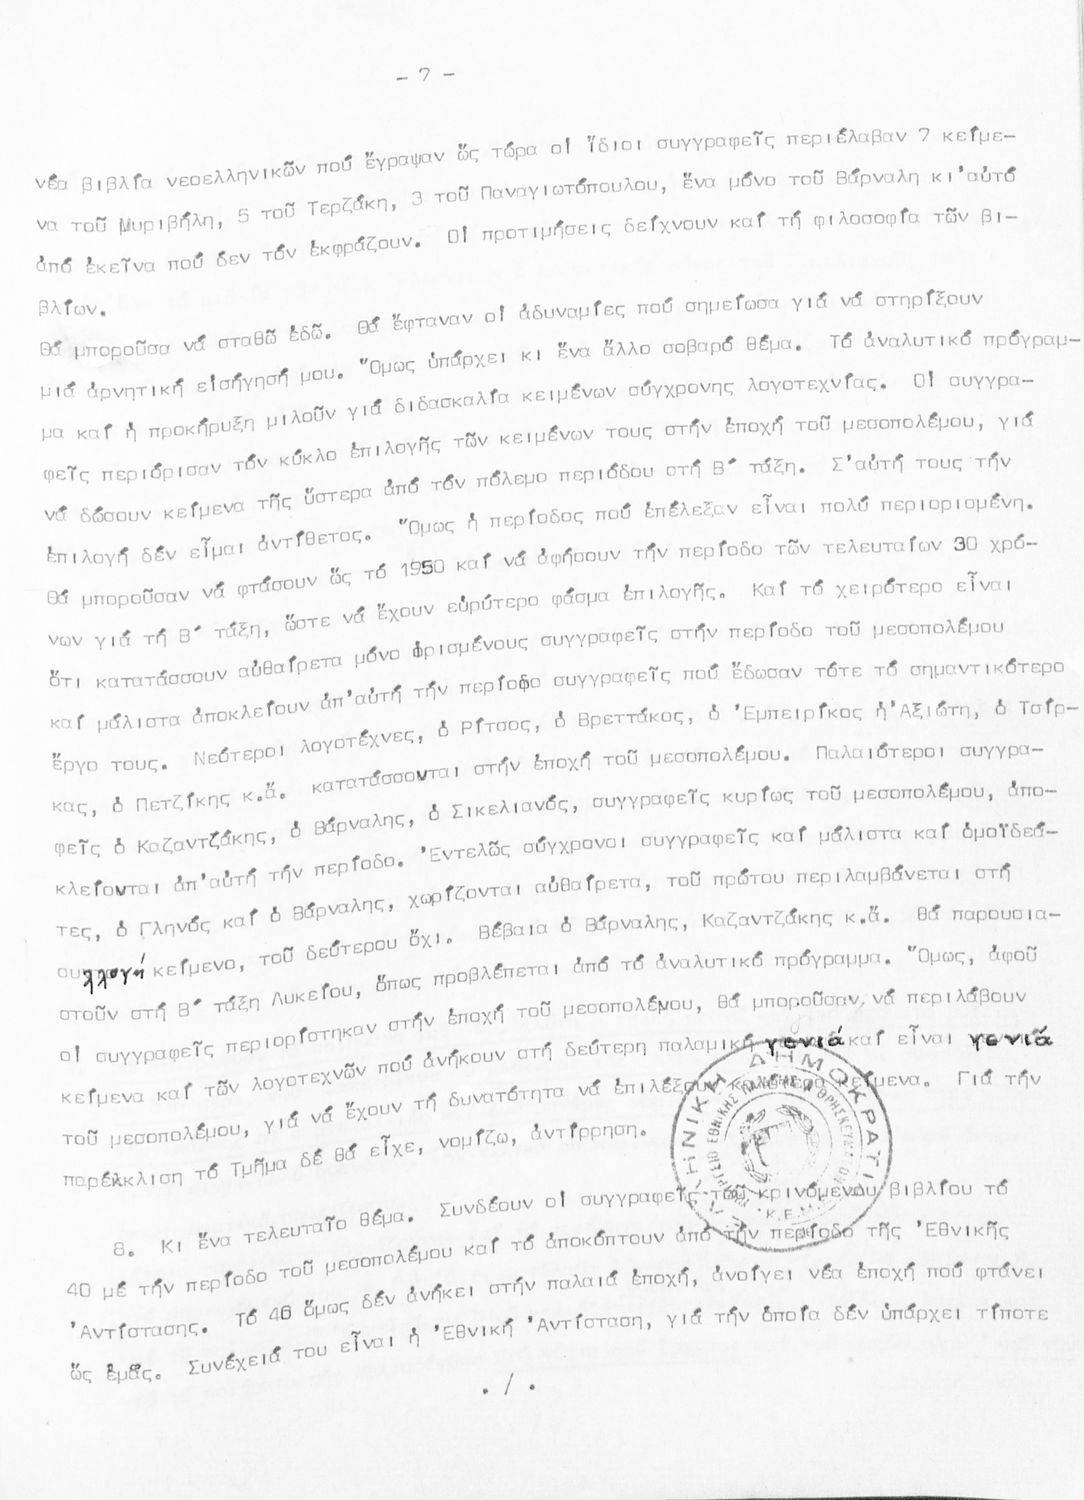 - 7 -
νέα βιβλία νεοελληνικῶν πού ἔγραψαν ὥς τώρα οἱ ἴδιοι συγγραφεῖς περιέλαβαν 7 κείμε-
να τοῦ Μυριβήλη, 5 τοῦ Τερζάκη, 3 τοῦ Παναγιωτόπουλου, ἕνα μόνο τοῦ Βάρναλη κι'αὐτό
ἀπό ἐκεῖνα πού δεν τόν ἐκφράζουν. Οἱ προτιμήσεις δείχνουν καί τή φιλοσοφία τῶν βι-
βλίων.
Θά μποροῦσα νά σταθῶ ἐδῶ. Θά ἔφταναν οἱ ἀδυναμίες πού σημείωσα γιά νά στηρίξουν
μιά ἀρνητική εἰσήγησή μου. Ὅμως ὑπάρχει κι ἕνα ἄλλο σοβαρό θέμα. Τό ἀναλυτικό πρόγραμ-
μα καί ἡ προκήρυξη μιλοῦν γιά διδασκαλία κειμένων σύγχρονης λογοτεχνίας. Οἱ συγγρα-
φεῖς περιόρισαν τόν κύκλο ἐπιλογῆς τῶν κειμένων τους στήν ἐποχή τοῦ μεσοπολέμου, γιά
νά δώσουν κείμενα τῆς ὕστερα ἀπό τόν πόλεμο περιόδου στή Β΄ τάξη. Σ'αὐτή τους τήν
ἐπιλογή δέν εἶμαι ἀντίθετος. Ὅμως ἡ περίοδος πού ἐπέλεξαν εἶναι πολύ περιορισμένη.
Θά μποροῦσαν νά φτάσουν ὥς τό 1950 καί νά ἀφήσουν τήν περίοδο τῶν τελευταίων 30 χρό-
νων γιά τή Β΄ τάξη, ὥστε νά ἔχουν εὐρύτερο φάσμα ἐπιλογῆς. Καί τό χειρότερο εἶναι
ὅτι κατατάσσουν αὐθαίρετα μόνο ὁρισμένους συγγραφεῖς στήν περίοδο τοῦ μεσοπολέμου
καί μάλιστα ἀποκλείουν ἀπ'αὐτή τήν περίοδο συγγραφεῖς πού ἔδωσαν τότε τό σημαντικότερο
ἔργο τους. Νεότεροι λογοτέχνες, ὁ Ρίτσος, ὁ Βρεττάκος, ὁ Ἐμπειρίκος ἡ'Αξιώτη, ὁ Τσίρ-
κας, ὁ Πετζίκης κ.ἄ. κατατάσσονται στήν ἐποχή τοῦ μεσοπολέμου. Παλαιότεροι συγγρα-
φεῖς ὁ Καζαντζάκης, ὁ Βάρναλης, ὁ Σικελιανός, συγγραφεῖς κυρίως τοῦ μεσοπολέμου, ἀπο-
κλείονται ἀπ'αὐτή τήν περίοδο. Ἐντελῶς σύγχρονοι συγγραφεῖς καί μάλιστα καί ὁμοϊδεά-
τες, ὁ Γληνός καί ὁ Βάρναλης, χωρίζονται αὐθαίρετα, τοῦ πρώτου περιλαμβάνεται στή
συλλογή κείμενο, τοῦ δεύτερου ὄχι. Βέβαια ὁ Βάρναλης, Καζαντζάκης κ.ἄ. θά παρουσια-
στοῦν στή Β΄ τάξη Λυκείου, ὅπως προβλέπεται ἀπό τό ἀναλυτικό πρόγραμμα. Ὅμως, ἀφοῦ
οἱ συγγραφεῖς περιορίστηκαν στήν ἐποχή τοῦ μεσοπολέμου, θά μποροῦσαν νά περιλάβουν
κείμενα καί τῶν λογοτεχνῶν πού ἀνήκουν στή δεύτερη παλαμική γενιά καί εἶναι γενιά
τοῦ μεσοπολέμου, γιά νά ἔχουν τή δυνατότητα νά ἐπιλέξουν καλύτερα κείμενα. Γιά τήν
παρέκκλιση τό Τμῆμα δέ θά εἶχε, νομίζω, ἀντίρρηση.
8. Κι ἕνα τελευταῖο θέμα. Συνδέουν οἱ συγγραφεῖς τοῦ κρινόμενου βιβλίου τό
40 μέ τήν περίοδο τοῦ μεσοπολέμου καί τό ἀποκόπτουν ἀπό τήν περίοδο τῆς Ἐθνικῆς
Ἀντίστασης. Τό 40 ὅμως δέν ἀνήκει στήν παλαιά ἐποχή, ἀνοίγει νέα ἐποχή πού φτάνει
ὥς ἐμᾶς. Συνέχειά του εἶναι ἡ Ἐθνική Ἀντίσταση, γιά τήν ὁποία δέν ὑπάρχει τίποτε
. / .
ΕΛΛΗΝΙΚΗ ΔΗΜΟΚΡΑΤΙΑ
ΕΘΝΙΚΗΣ ΠΑΙΔΕΙΑΣ